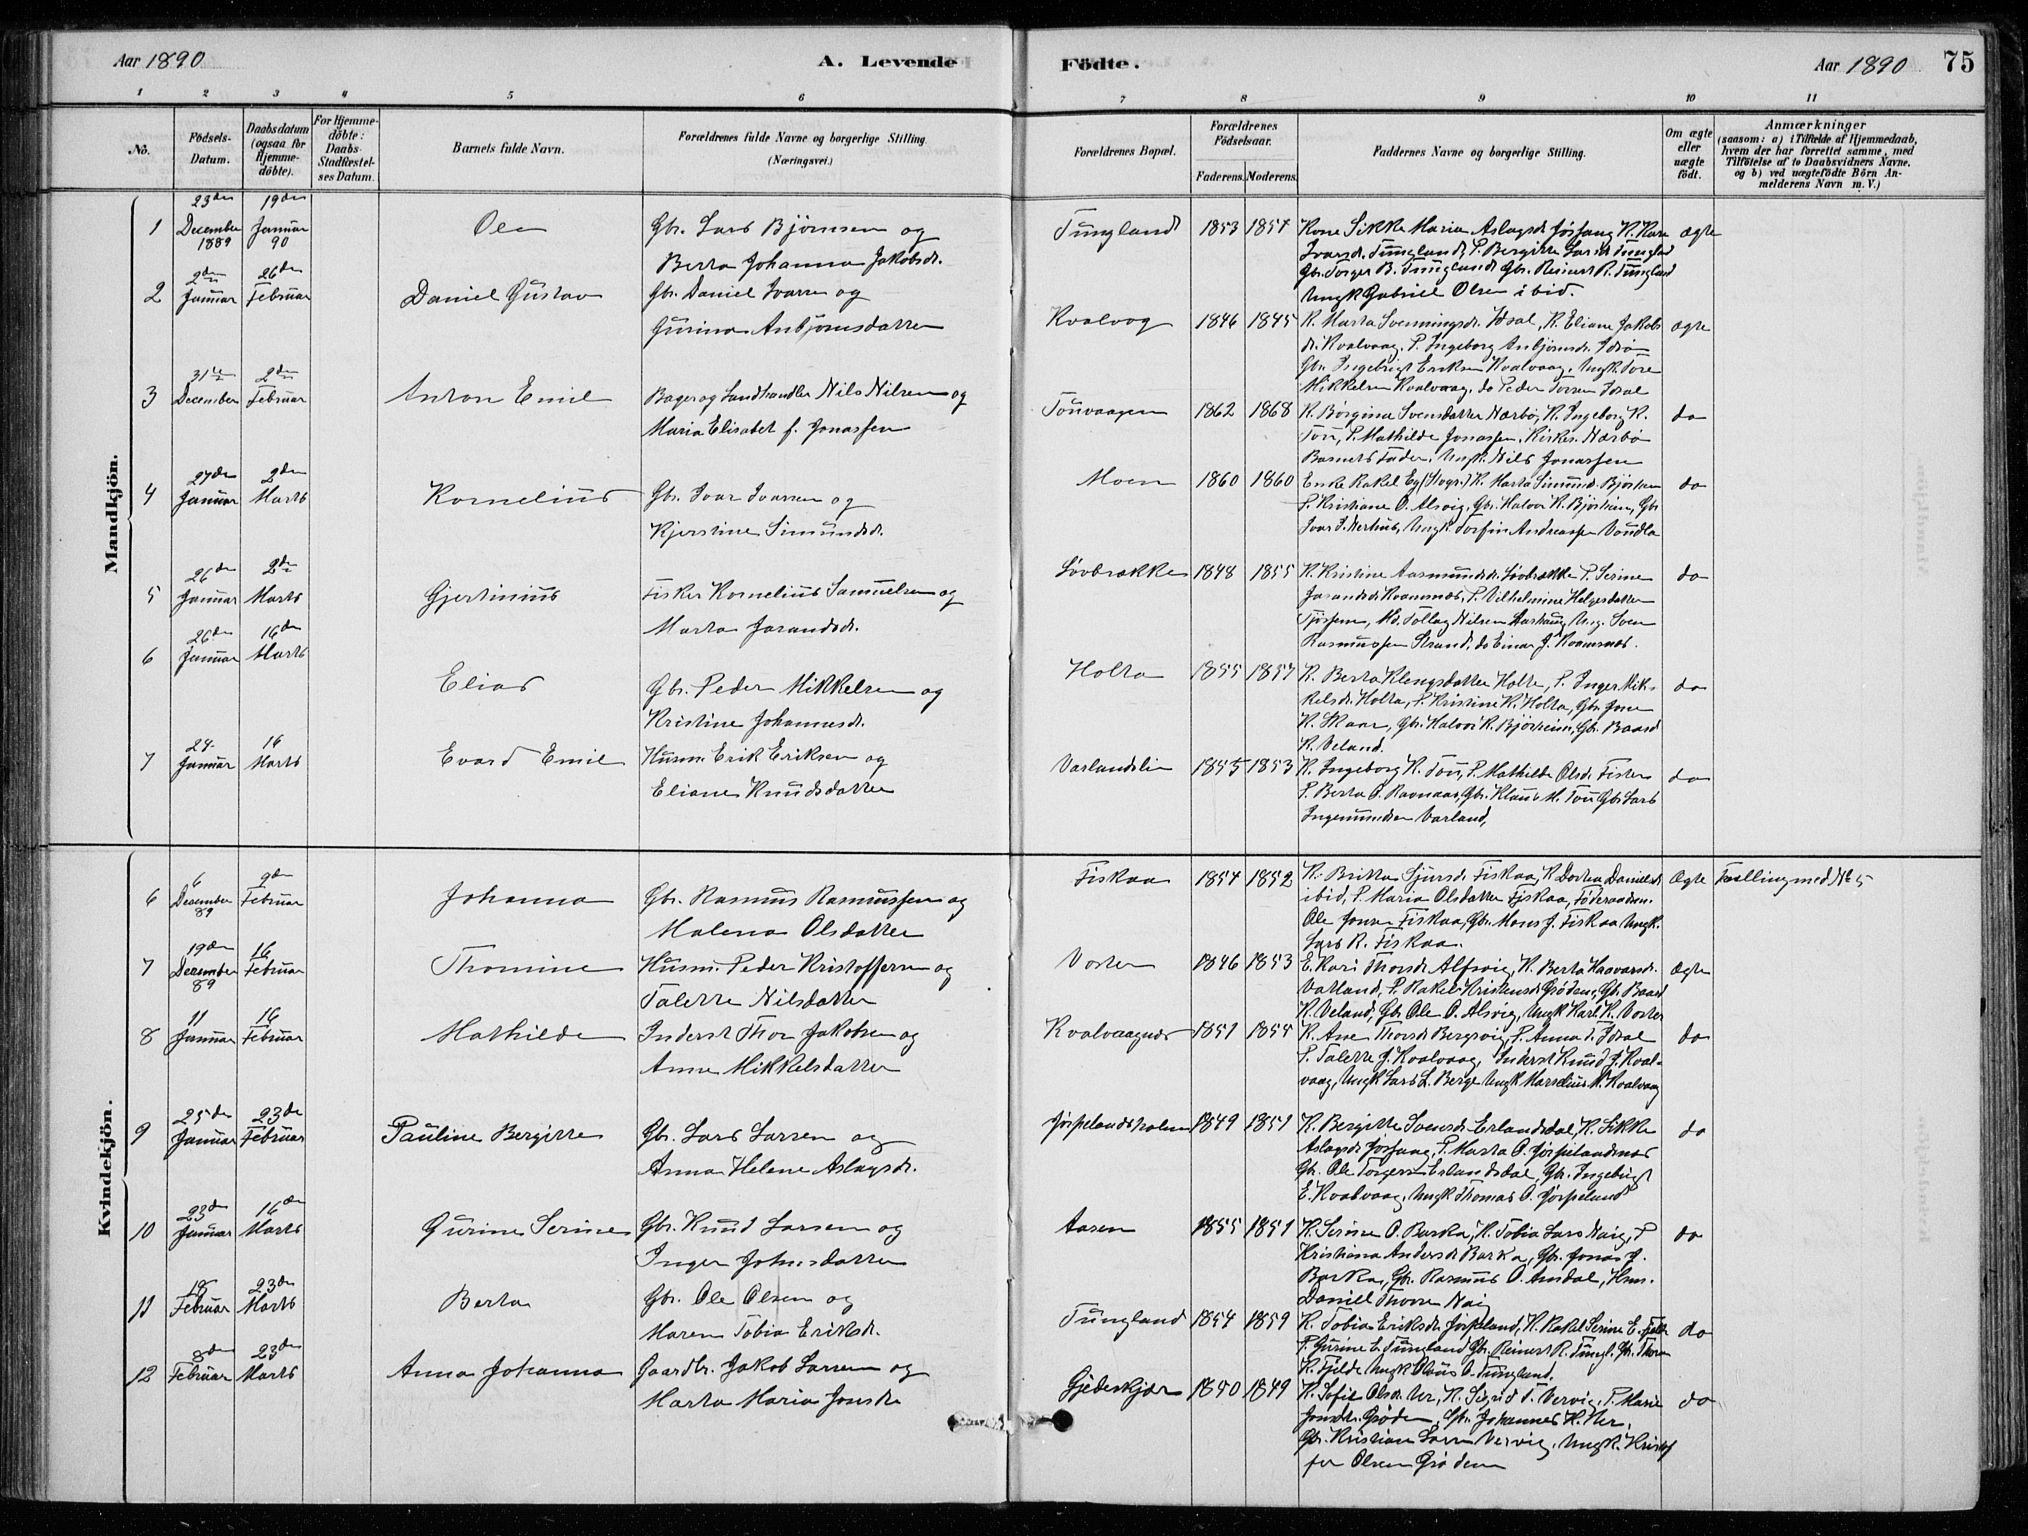 Aar 1890
A. Levende
Födte.
Aar 1890
75
1 2 3 4 5 6 7 8 9 10 11
No.
Födsels-
Datum.
Daabsdatum
(ogsaa for
Hjemme-
döbte).
For Hjemme-
döbte:
Daabs-
Stadfæstel-
ses Datum.
Barnets fulde Navn.
Forældrenes fulde Navne og borgerlige Stilling
(Næringsvei.)
Forældrenes Bopæl.
Forældrenes
Födselsaar.
Faderens.
Moderens.
Faddernes Navne og borgerlige Stilling.
Om ægte
eller
uægte
födt.
Anmærkninger
(saasom: a) i Tilfælde af Hjemmedaab,
hvem der har forrettet samme, med
Tilföielse af to Daabsvidners Navne.
og b) ved uægtefödte Börn An-
melderens Navn m. V.)
Mandkjön.
1
23de
December
1889
19de
Januar
90
Ole
Gbr. Lars Bjørnsen og
Berta Johanna Jakobsdr.
Tungland
1853
1854
Kone Sikke Maria Aslagsdr Jøssang K. Kare
Ivarsd. Tungland, P. Bergitte Larsdr Tungland
Gbr. Torger B. Tungland Gbr. Reinert R. Tungland
Ungk Gabriel Olsen ibid.
ægte
2
2den
Januar
26de
Februar
Daniel Gustav
Gbr. Daniel Ivarsen og
Gurina Anbjørnsdatter
Kvalvaag
1846
1845
K. Marta Svenningsdr. Idsal, K. Eliane Jakobs
dr. Kvalvaag, P. Ingeborg Anbjørnsdr. Idsø
Gbr. Ingebrigt Eriksen Kvalvaag, Ungk Tore
Mikkelsen Kvalvaag, do Peder Torsen Idsal
ægte
3
31te
December
2den
Februar
Anton Emil
Bager og Landhandler Nils Nilsen og
Maria Elisabet f. Jonassen
Touvaagen
1862
1868
K. Børgina Svensdatter Nærbø, K. Ingeborg K.
Tou, P. Mathilde Jonassen, Kirkes. Nærbø
Barnets Fader, Ungk. Nils Jonassen
do
4
27de
Januar
2den
Marts
Kornelius
Gbr. Ivar Ivarsen og
Kjerstine Simundsdr.
Moen
1860
1860
Enke Rakel Eg K. Marta Simunds. Bjørheim
P. Kristiane O. Alsvig, Gbr. Halvor K. Bjørheim, Gbr
Ivar I. Nerhus, Ungk Torfin Andreassen Voudla
do
5
26de
Januar
2den
Marts
Gjertinius
Fisker Kornelius Samuelsen og
Marta Jorandsdr.
Løvbrække
1848
1855
K. Kristine Aasmundsdr. Løvbrække P. Serine
Jorandsdr. Kvamsnæs, P. Vilhelmine Helgesdatter
Tjøstem, Md. Tollag Nilsen Aarhaug, Ung. Sven
Rasmussen Strand, do Einar J. Kvamsnæs.
do
6
26de
Januar
16de
Marts
Elias
Gbr. Peder Mikkelsen og
Kristine Johannesdr.
Holta
1855
1857
K. Berta Klengsdatter Holte, P. Inger Mik-
kelsdr. Holta, P. Kristine K. Holta, Gbr. Jone
K. Skaar, Gbr. Halvor K. Bjørheim, Gbr. Baard
K. Veland.
do
7
24.
Januar
16
Marts
Evard Emil
Husm. Erik Eriksen og
Eliane Knudsdatter
Varlandslie
1855
1853
K. Ingeborg K. Tou, P. Mathilde Olsdr. Fister
P. Berta O. Ravnaas, Gbr. Klaus M. Tou Gbr. Lars
Ingemundsen Varland,
do
Kvindekjön.
6
6
December
89
9de
Februar
Johanna
Gbr. Rasmus Rasmussen og
Malena Olsdatter
Fiskaa
1854
1852
K. Britta Sjursdr. Fiskaa, K Dortea Danielsdr
ibid, P. Maria Olsdatter Fiskaa, Føderaadsm.
Ole Jonsen Fiskaa, Gbr. Mons J. Fiskaa Ungk.
Lars R. Fiskaa.
Ægte
Tvilling med No 5
7
19de
December
89
16
Februar
Thomine
Husm. Peder Kristoffersen og
Talette Nilsdatter
Voster
1846
1853
E. Kari Thorsdr. Alsvig, K. Berta Haavarsdr.
Vatland, P. Rakel Kristensdr Grødem, Gbr. Baard
K. Veland, Gbr. Ole O. Alsvig, Ungk Karl K. Voster
Ægte
8
11
Januar
16
Februar
Mathilde
Inderst Thor Jakobsen og
Anna Mikkelsdatter
Kvalvaagnes
1851
1855
K. Ane Thorsdr Bergsvig, P. Anna T. Idsal
P. Talette J. Kvalvaag Inderst Knud J. Kval-
vaag, Ungk Lars L. Berge Ungk Marselius M. Kvalvaag
do
9
25de
Januar
23de
Februar
Pauline Bergitte
Gbr. Lars Larsen og
Anna Helene Aslagsdr.
Jørpelandsholm
1849
1851
K. Bergitte Svensdr. Erlandsdal, K. Sikke
Aslagsdr Jøssang, P. Marta O. Jørpelandsnæs
Gbr. Ole Torgersen Erlandsdal, Gbr. Ingebrigt
E. Kvalvaag, Ungk Thomas O. Jørpeland
do
10
23de
Januar
16de
Marts
Gurine Serine
Gbr. Knud Larsen og
Inger Johnsdatter
Aasen
1855
1851
K. Serine O. Barka, K. Tobia Lars Naig, P
Kristiana Andersdr. Barka, Gbr. Jonas J.
Barka, Gbr. Rasmus O. Amdal, Hm.
Daniel Thorsen Naig
do
11
18
Februar
23de
Marts
Berta
Gbr. Ole Olsen og
Maren Tobia Eriksdr.
Tungland
1854
1859
K. Tobia Eriksdr. Jørpeland, K. Rakel Serine E.
P. Gurine E. Tungland Gbr. Reinert R. Tungl. Gbr. Thore
K. Fjelde Ungk Olaus O. Tungland.
do
12
8de
Februar
23de
Marts
Anna Johanna
Gaardbr. Jakob Larsen og
Marta Maria Jonsdr
Gjedeskjær
1850
1849
K. Sofie Olsdr. Ur, K. Sigrid T. Vervig, P. Marie
Jonsdtr. Grødem, Gbr. Johannes K. Ner.
Gbr. Kristian Larsen Vervig, Ungk. Kristof
fer Olsen Grødem
do